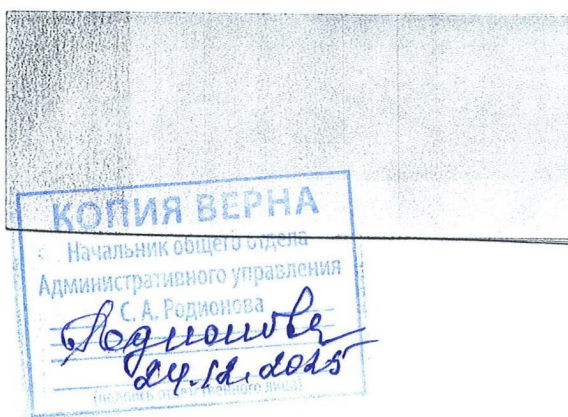 КОПИЯ ВЕРНА
Начальник общего отдела
Административного управления
С. А. Родионова
Родионова
24.12.2025
(подпись ответственного лица)